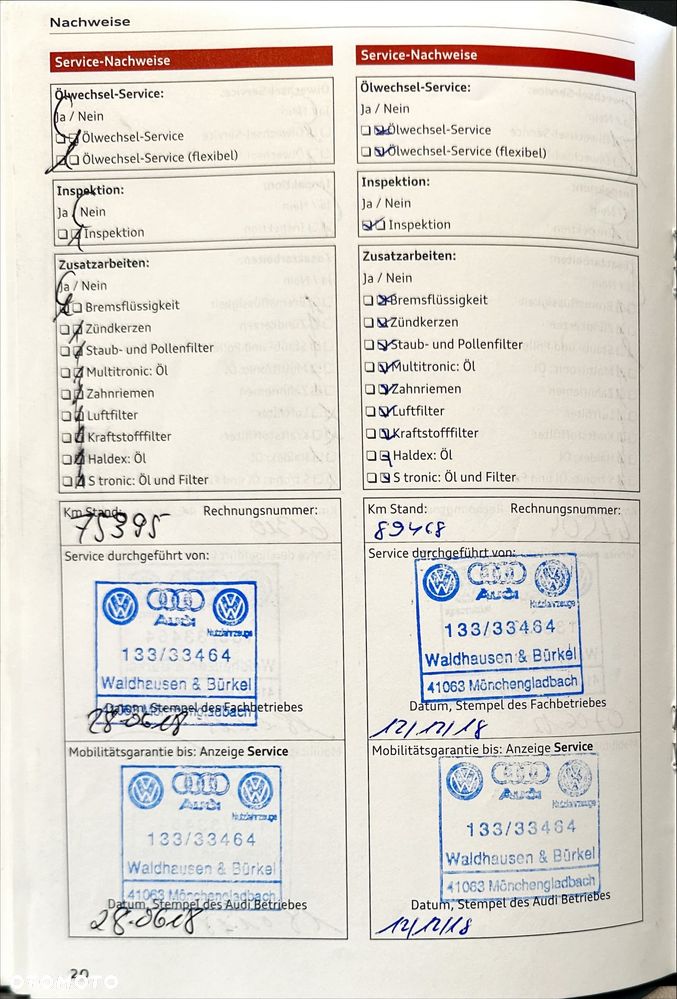 Nachweise
Service-Nachweise
Ölwechsel-Service:
Ja / Nein
Ölwechsel-Service
Ölwechsel-Service (flexibel)
Inspektion:
Ja / Nein
Inspektion
Zusatzarbeiten:
Ja / Nein
Bremsflüssigkeit
Zündkerzen
Staub- und Pollenfilter
Multitronic: Öl
Zahnriemen
Luftfilter
Kraftstofffilter
Haldex: Öl
S tronic: Öl und Filter
Km Stand: Rechnungsnummer:
75395
Service durchgeführt von:
Audi
Nutzfahrzeuge
133/33464
Waldhausen & Bürkel
41063 Mönchengladbach
Datum, Stempel des Fachbetriebes
28-0618
Mobilitätsgarantie bis: Anzeige Service
Audi
Nutzfahrzeuge
133/33464
Waldhausen & Bürkel
41063 Mönchengladbach
Datum, Stempel des Audi Betriebes
28-0618
20
Service-Nachweise
Ölwechsel-Service:
Ja / Nein
Ölwechsel-Service
Ölwechsel-Service (flexibel)
Inspektion:
Ja / Nein
Inspektion
Zusatzarbeiten:
Ja / Nein
Bremsflüssigkeit
Zündkerzen
Staub- und Pollenfilter
Multitronic: Öl
Zahnriemen
Luftfilter
Kraftstofffilter
Haldex: Öl
S tronic: Öl und Filter
Km Stand: Rechnungsnummer:
89468
Service durchgeführt von:
Audi
Nutzfahrzeuge
133/33464
Waldhausen & Bürkel
41063 Mönchengladbach
Datum, Stempel des Fachbetriebes
12/12/18
Mobilitätsgarantie bis: Anzeige Service
Audi
Nutzfahrzeuge
133/33464
Waldhausen & Bürkel
41063 Mönchengladbach
Datum, Stempel des Audi Betriebes
12/12/18
OTOMOTO